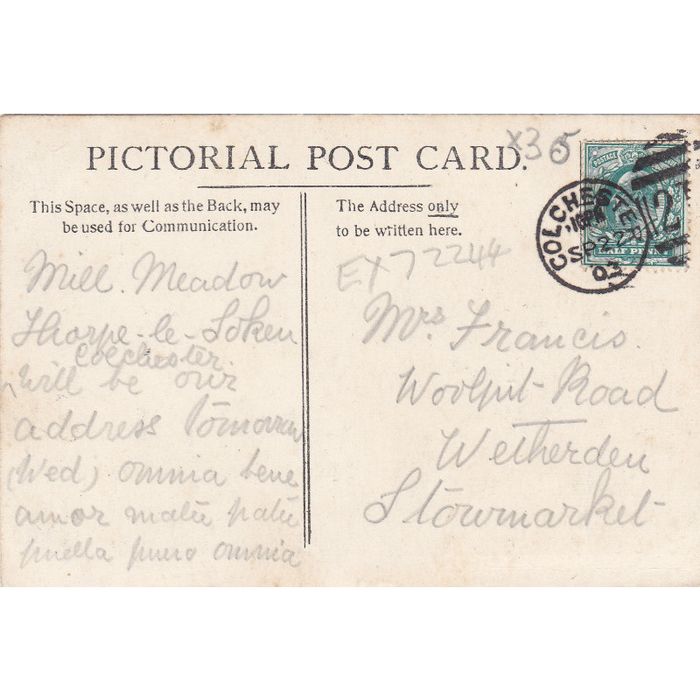 x36
PICTORIAL POST CARD.
This Space, as well as the Back, may
be used for Communication.
The Address only
to be written here.
COLCHESTER
SP 22
03
POSTAGE
HALF PENNY
EX72244
Mill. Meadow
Thorpe-le-Soken
Colchester
will be our
address tomorrow
(Wed) omnia bene
amor matri patri
puella puero omnia
Mrs Francis.
Woolpit Road
Wetherden
Stowmarket